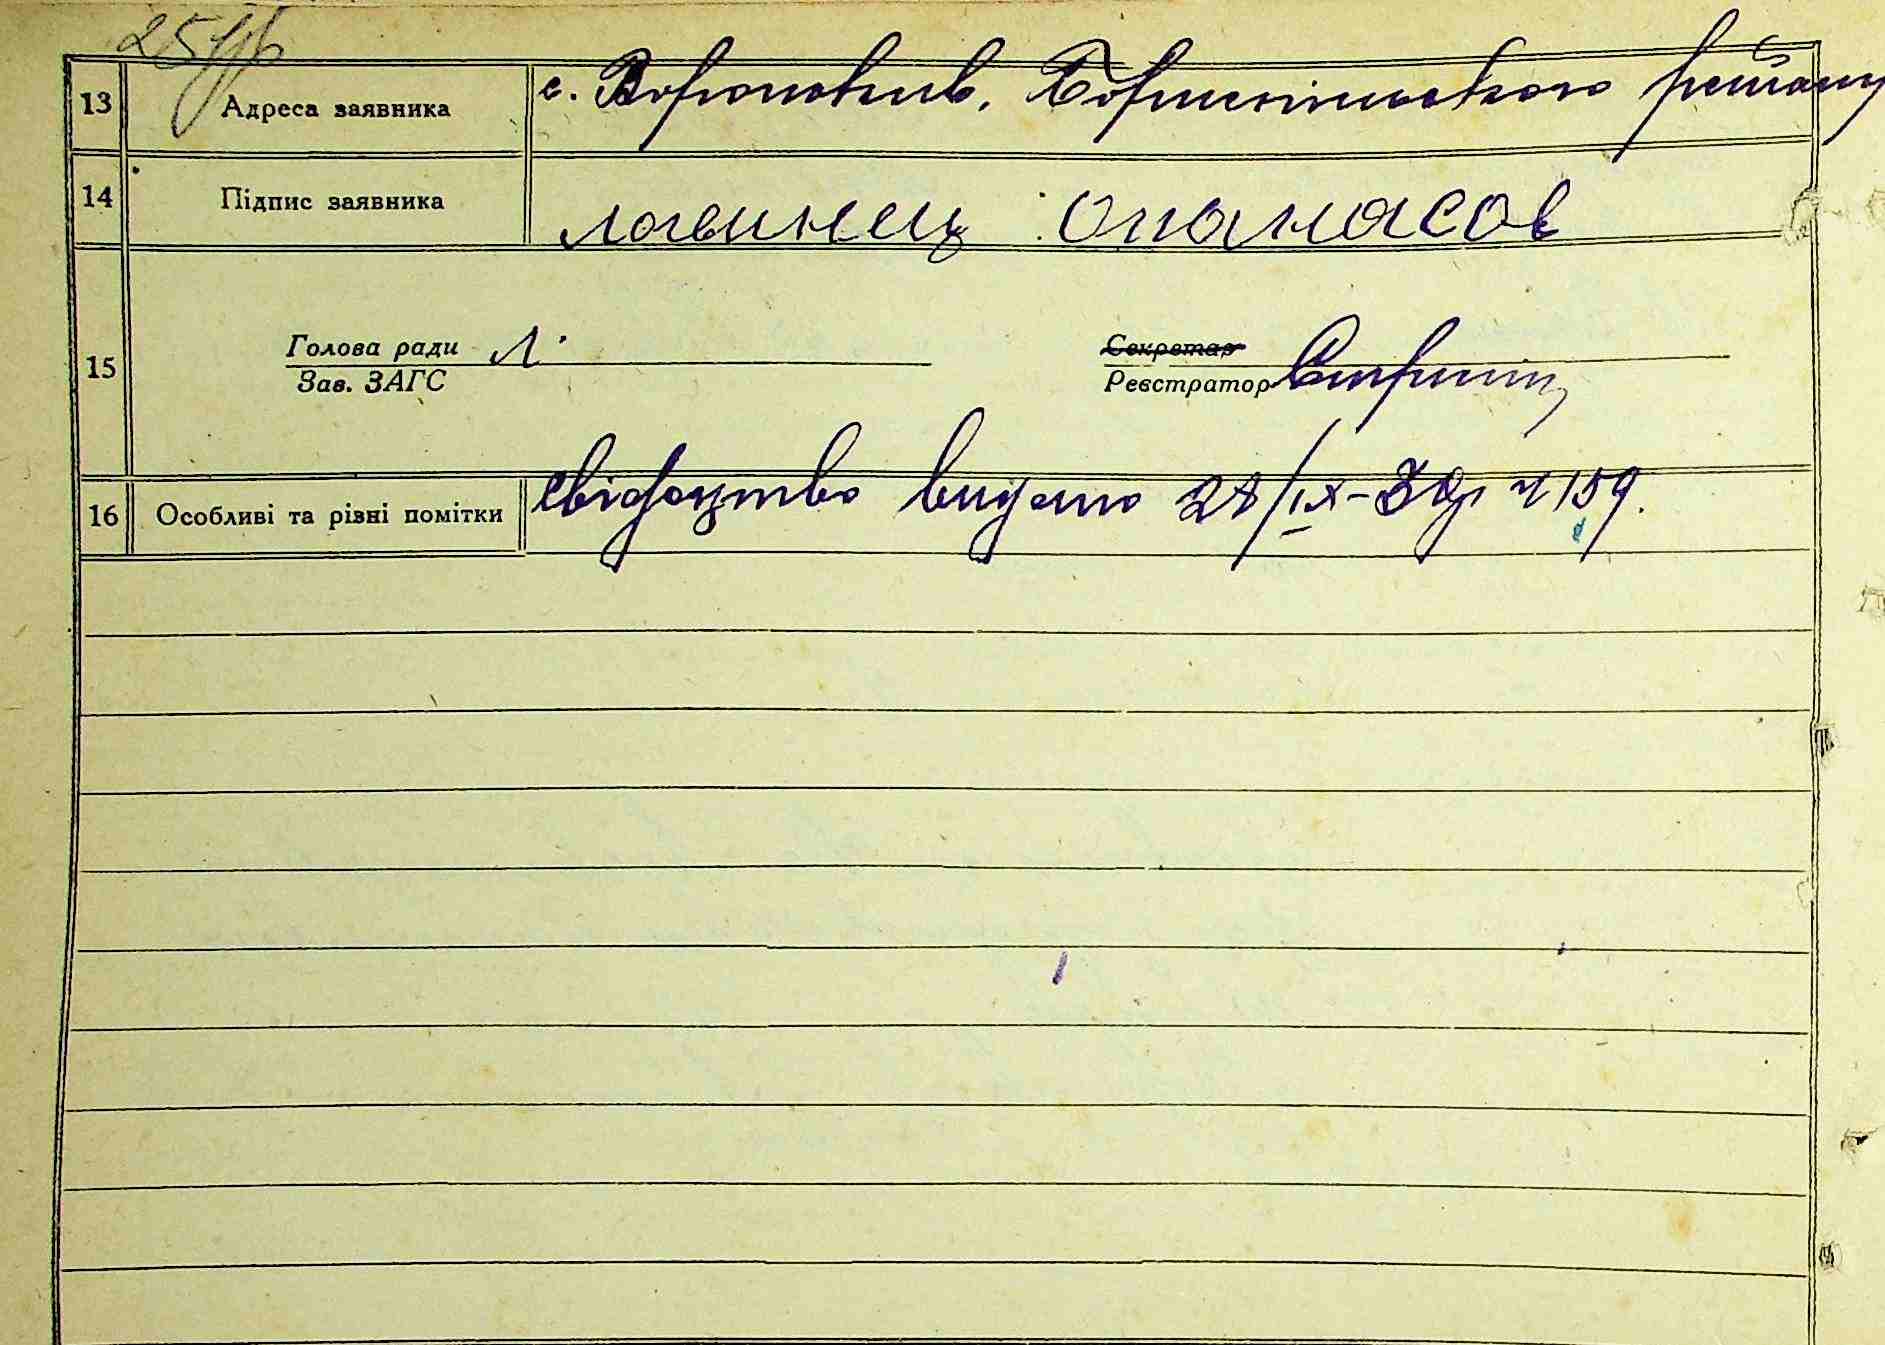 25
13 Адреса заявника с. Вороньків, Бориспільского району
14 Підпис заявника логвинец опанасов
Голова ради Л. Секретар
15 Зав. ЗАГС Реєстратор
16 Особливі та різні помітки свідоцтво видано 28/IX-39р ч 159.